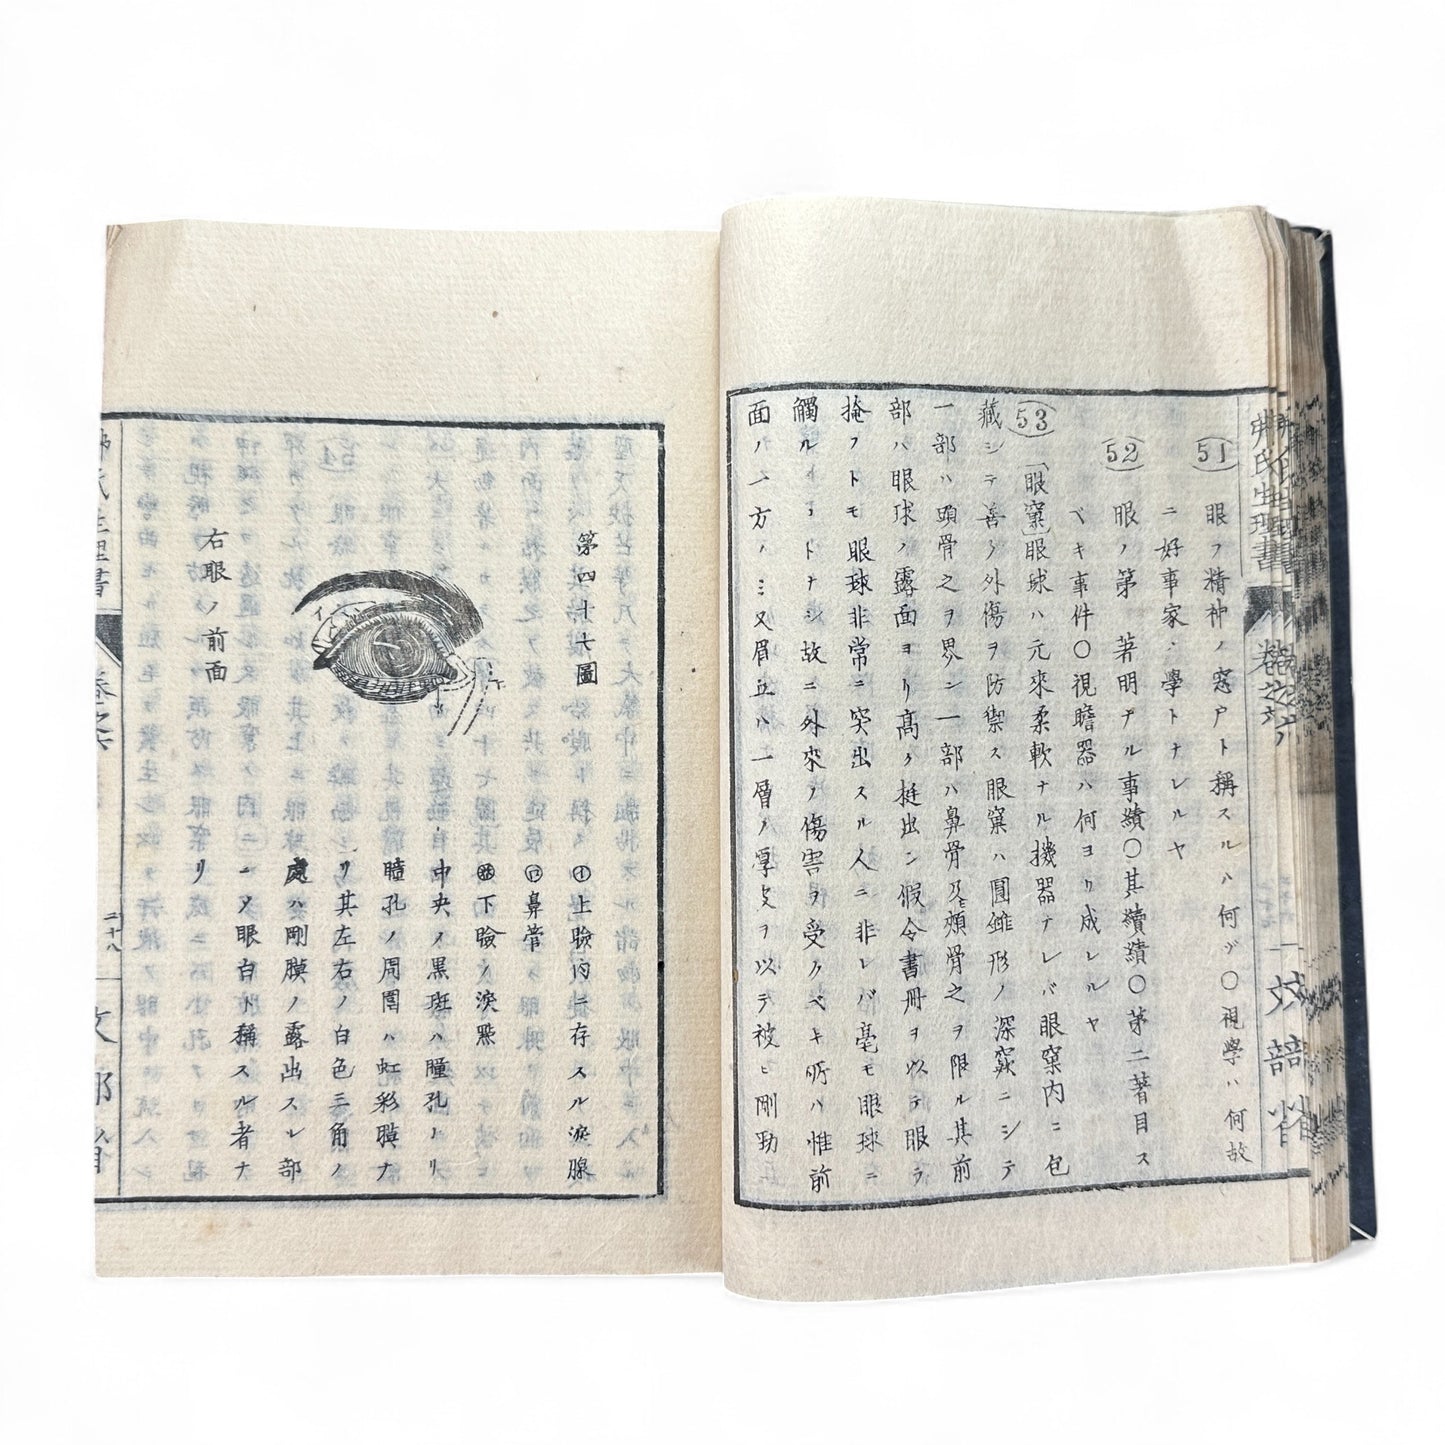 51
眼ヲ精神ノ窓戸ト稱スルハ何ゾ〇視學ハ何故
ニ好事家ニ學トナレルヤ
52
眼ノ第一著明ナル事績〇其續績〇第二著目ス
ベキ事件〇視瞻器ハ何ヨリ成レルヤ
53
「眼窠」眼球ハ元來柔軟ナル機器ナレバ眼窠内ニ包
藏シテ善ク外傷ヲ防禦ス眼窠ハ圓錐形ノ深窾ニシテ
一部ハ頭骨之ヲ界シ一部ハ鼻骨及ヒ頰骨之ヲ限ル其前
部ハ眼球ノ露面ヨリ高ク挺出シ假令書冊ヲ以テ眼ヲ
掩フトモ眼球非常ニ突出スル人ニ非レバ毫モ眼球ニ
觸ルヽコトナシ故ニ外來ノ傷害ヲ受クベキ所ハ惟前
面ノ一方ノミ又眉立ハ一層ノ厚皮ヲ以テ被ヒ剛勁
氏生理書
卷之六
文部省
第四十六圖
イ
ロ
右眼ノ前面
㋑上瞼内ニ存スル淚腺
㋺鼻管
㋩下瞼ノ淚點
中央ノ黒斑ハ瞳孔ナリ
瞳孔ノ周圍ハ虹彩膜ナ
リ其左右ノ白色三角ノ
處ハ剛膜ノ露出スル部
ニメ眼白ト稱スル者ナ
リ
氏生理書
卷之六
二十八
文部省